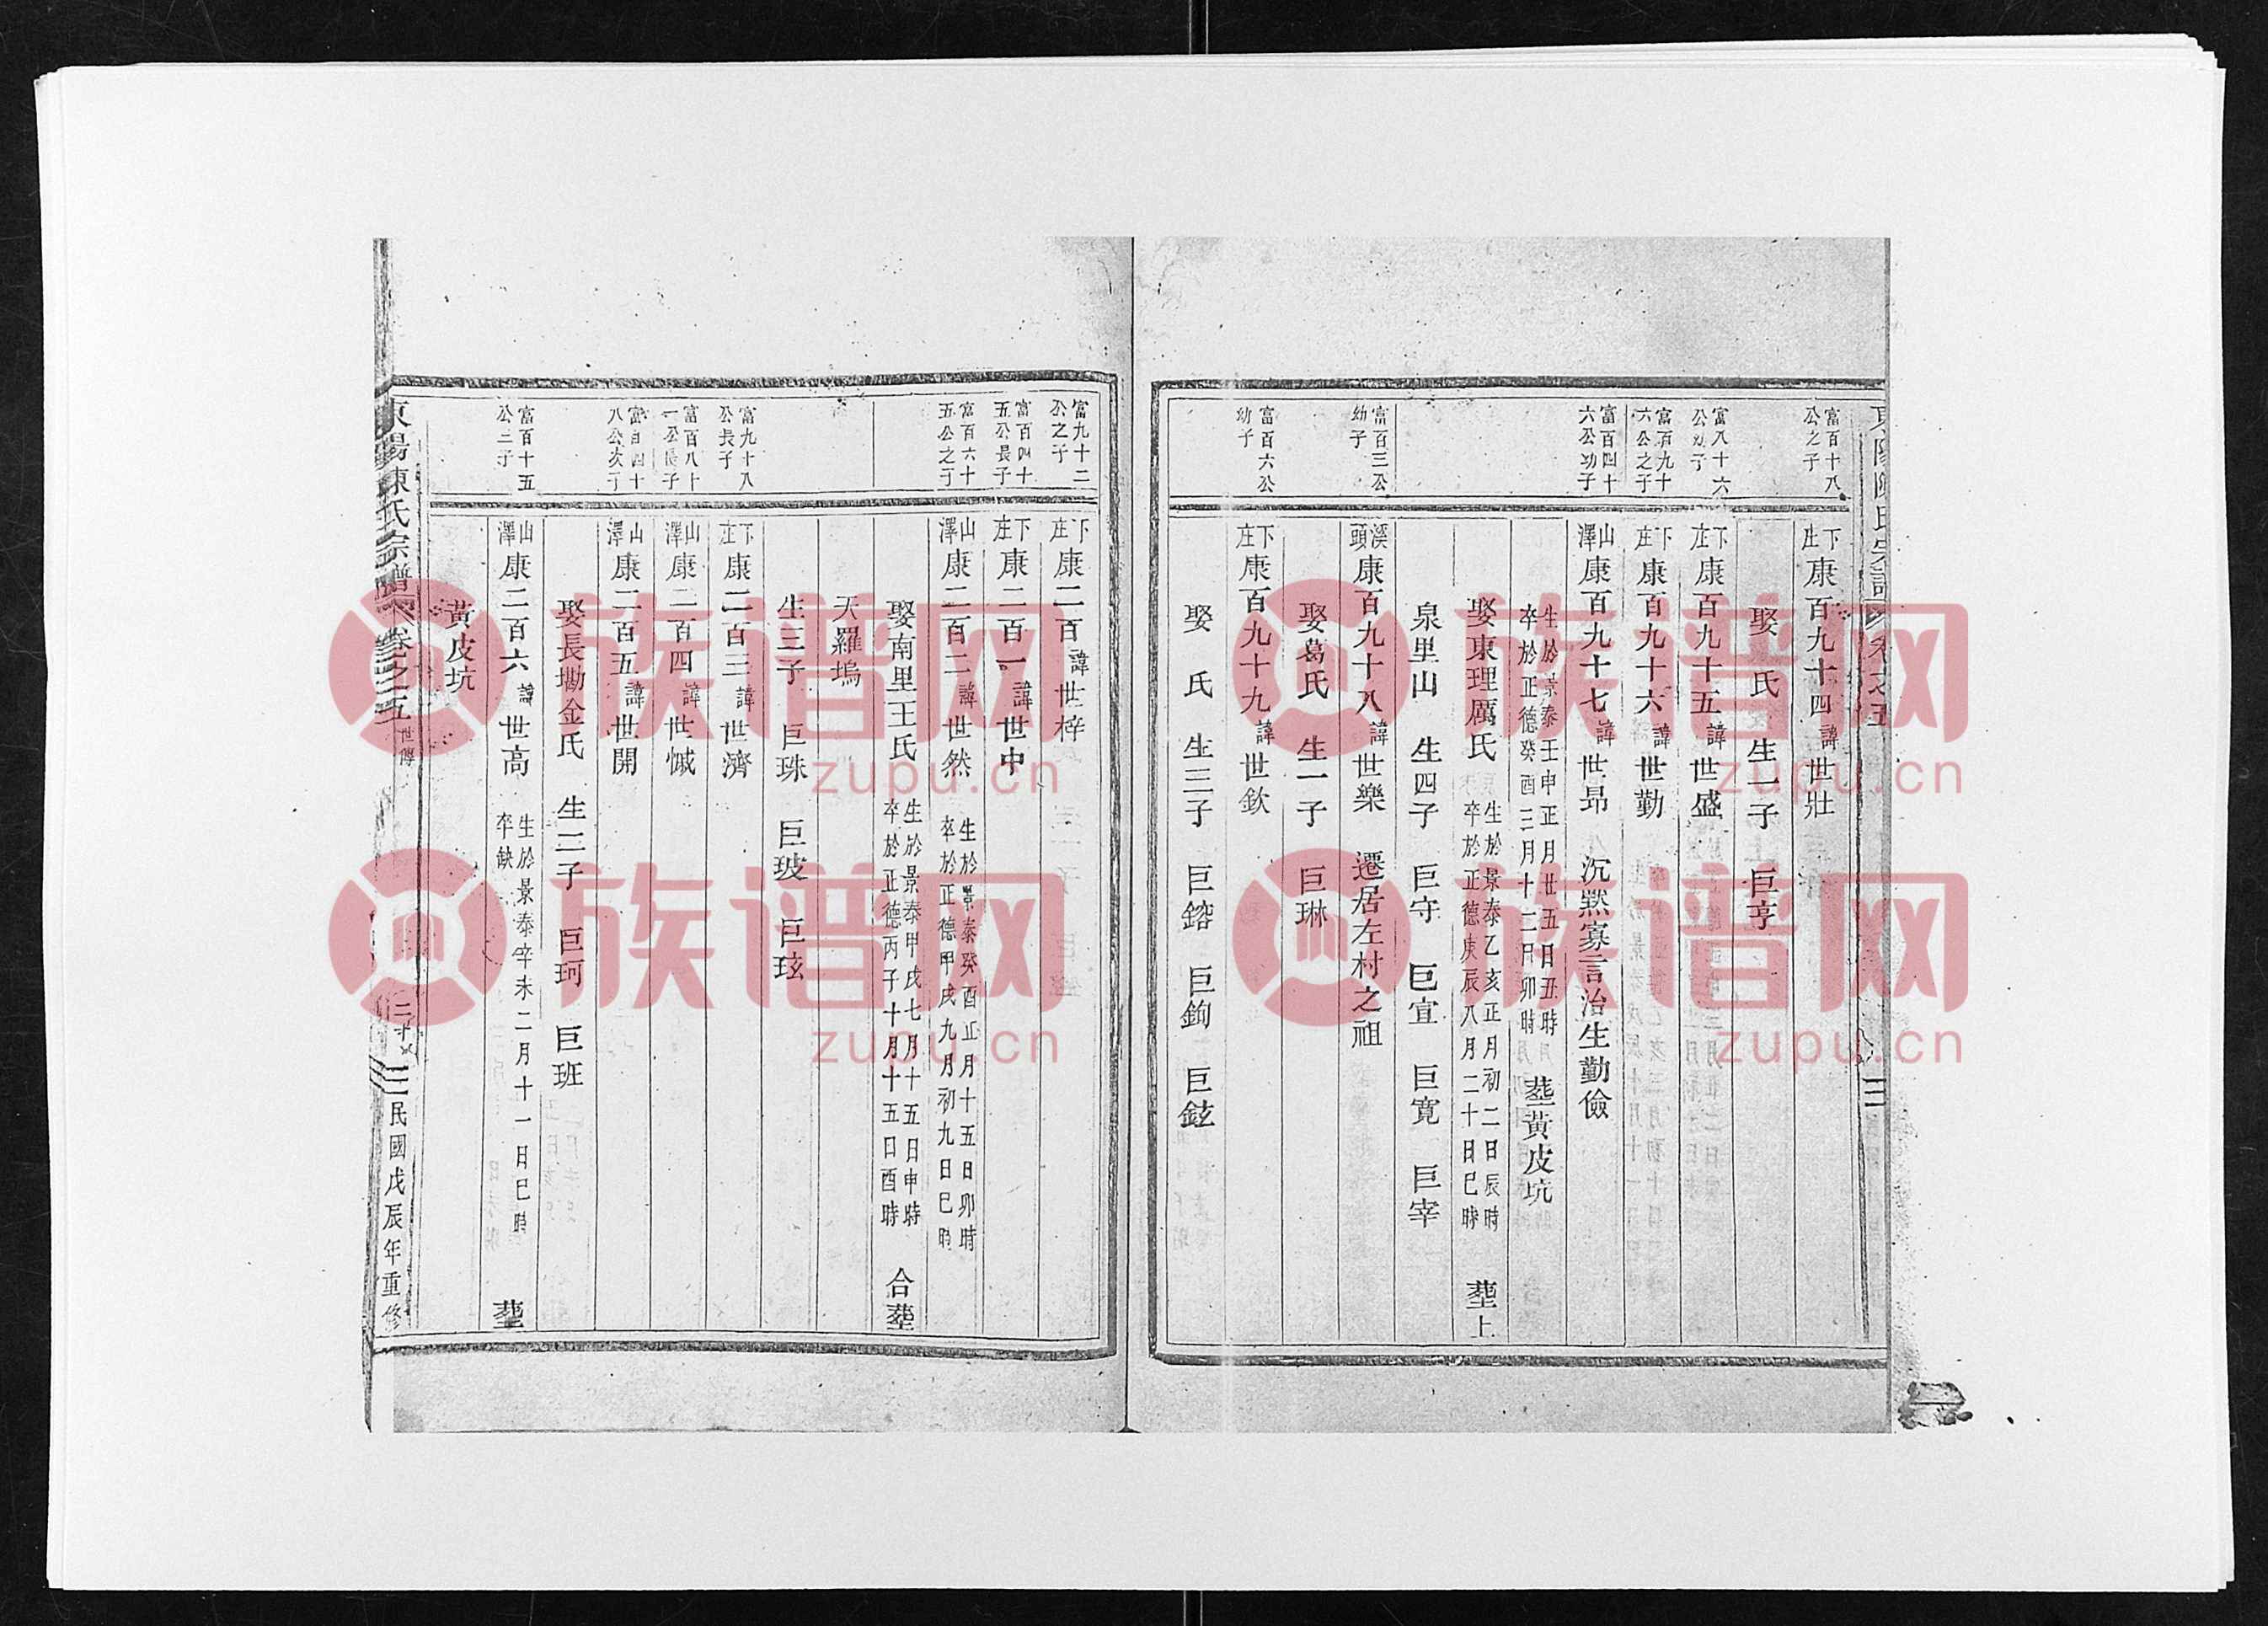 富百十八
公之子
下
庄
康百九十四諱世壯
娶 氏 生一子 巨亨
富八十六
公幼子
下
庄
康百九十五諱世盛
富百九十
六公之子
下
庄
康百九十六諱世勤
富百四十
六公幼子
山
澤
康百九十七諱世昻 沉默寡言治生勤儉
生於景泰壬申正月廿五日丑時
卒於正德癸酉三月十二日卯時
塟黃皮坑
娶東理厲氏
生於景泰乙亥正月初二日辰時
卒於正德庚辰八月二十日巳時
塟上
泉里山 生四子 巨守 巨宣 巨寬 巨宰
富百三公
幼子
溪
頭
康百九十八諱世樂 遷居左村之祖
娶葛氏 生一子 巨琳
富百六公
幼子
下
庄
康百九十九諱世欽
娶 氏 生三子 巨鎔 巨鉤 巨鉉
富九十二
公之子
下
庄
康二百諱世梓
富百四十
五公長子
下
庄
康二百一諱世中
富百六十
五公之子
山
澤
康二百二諱世然
生於景泰癸酉正月十五日卯時
卒於正德甲戌九月初九日巳時
娶南里王氏
生於景泰甲戌七月十五日申時
卒於正德丙子十月十五日酉時
合塟
天羅塢
生三子 巨珠 巨玻 巨玹
富九十八
公長子
下
庄
康二百三諱世濟
富百八十
一公長子
山
澤
康二百四諱世悈
富百四十
八公次子
山
澤
康二百五諱世開
娶長塘金氏 生二子 巨珂 巨班
富百十五
公二子
山
澤
康二百六諱世高
生於景泰辛未二月十一日巳時
卒缺
塟
黃皮坑
東陽陳氏宗譜 卷之五 世傳 民國戊辰年重修
族谱网
zupu.cn
族谱网
zupu.cn
族谱网
zupu.cn
族谱网
zupu.cn